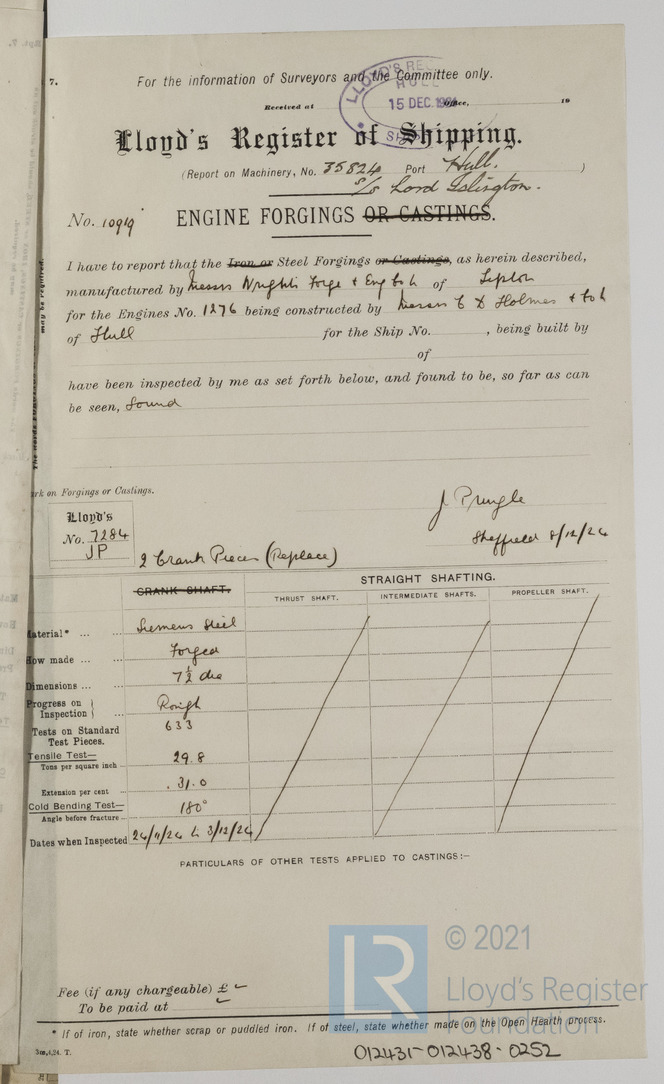 7.
For the information of Surveyors and the Committee only.
Received at Office, 19
LLOYD'S REG
HULL
15 DEC. 1924
SH
Lloyd's Register of Shipping.
(Report on Machinery, No. 35824 Port Hull. )
s/s Lord Islington.
No. 10919 ENGINE FORGINGS OR CASTINGS.
I have to report that the Iron or Steel Forgings or Castings, as herein described,
manufactured by Messrs Wrights Forge & Eng Co Ld of Tipton
for the Engines No. 1276 being constructed by Messrs C D Holmes & Co Ld
of Hull for the Ship No. , being built by
of
have been inspected by me as set forth below, and found to be, so far as can
be seen, Sound
may be required.
ark on Forgings or Castings.
Lloyd's
No. 7284
JP
J Pringle
Sheffield 8/12/24
2 Crank Pieces (Replace)
CRANK SHAFT.
STRAIGHT SHAFTING.
THRUST SHAFT. INTERMEDIATE SHAFTS. PROPELLER SHAFT.
Material* ... ... Siemens Steel
How made ... ... Forged
Dimensions ... ... 7½ dia
Progress on Inspection } ... Rough
Tests on Standard Test Pieces. 633
Tensile Test—
Tons per square inch ... 29.8
Extension per cent ... 31.0
Cold Bending Test—
Angle before fracture ... 180°
Dates when Inspected 26/11/24 to 3/12/24
PARTICULARS OF OTHER TESTS APPLIED TO CASTINGS:—
Fee (if any chargeable) £
To be paid at
* If of iron, state whether scrap or puddled iron. If of steel, state whether made on the Open Hearth process.
3m,4,24. T.
012431-012438-0252
LR
© 2021
Lloyd's Register
Foundation